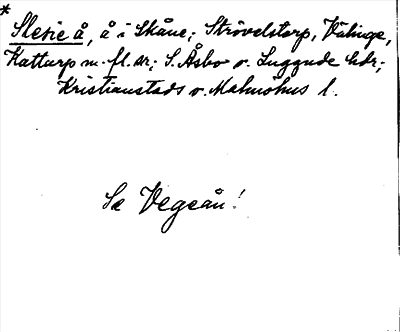 * Slesie å, å i Skåne; Strövelstorp, Välinge,
Kattarp m. fl. sr; S. Åsbo o. Luggude hdr;
Kristianstads o. Malmöhus l.
Se Vegeån!